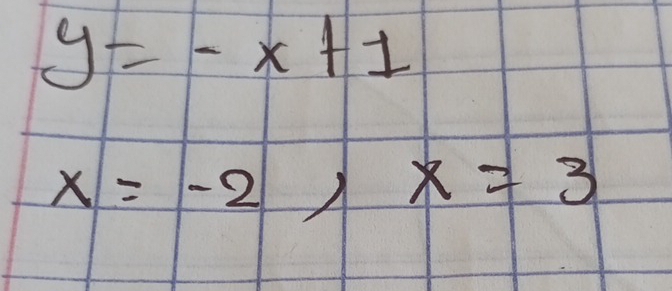 y = - x + 1
x = -2 , x = 3